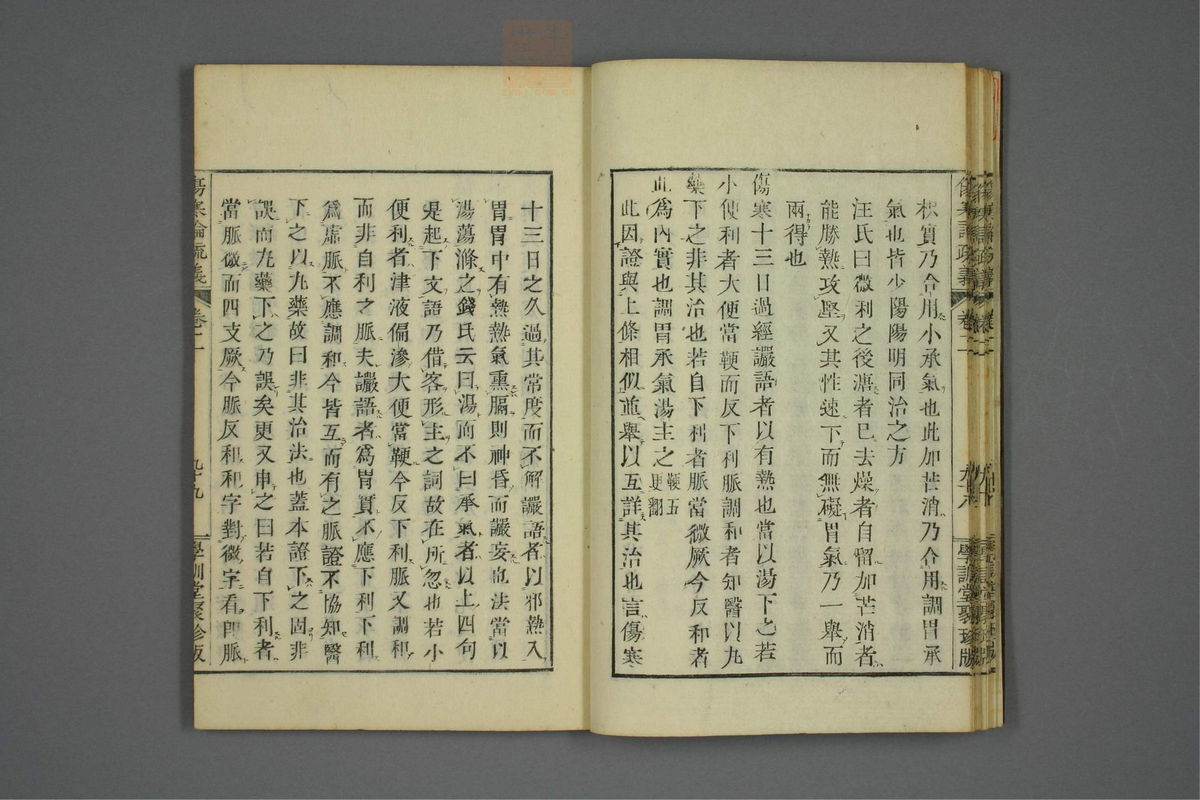 傷寒論疏義 卷二 九十八 學訓堂聚珍版
枳實乃合用小承氣也此加芒消乃合用調胃承
氣也皆少陽陽明同治之方
汪氏曰微利之後溏者已去燥者自留加芒消者
能勝熱攻堅又其性速下而無礙胃氣乃一舉而
兩得也
傷寒十三日過經讝語者以有熱也當以湯下之若
小便利者大便當鞕而反下利脈調和者知醫以丸
藥下之非其治也若自下利者脈當微厥今反和者
此為內實也調胃承氣湯主之鞕五更翻
此因證與上條相似並舉以互詳其治也言傷寒
十三日之久過其常度而不解讝語者以邪熱入
胃胃中有熱熱氣熏膈則神昏而讝妄也法當以
湯蕩滌之錢氏云曰湯而不曰承氣者以上四句
是起下文語乃借客形主之詞故在所忽也若小
便利者津液偏滲大便當鞕今反下利脈又調和
而非自利之脈夫讝語者為胃實不應下利下利
為虛脈不應調和今皆互而有之脈證不協知醫
下之以丸藥故曰非其治法也蓋本證下之固非
誤而丸藥下之乃誤矣更又申之曰若自下利者
當脈微而四支厥今脈反和和字對微字看即脈
傷寒論疏義 卷二 九十九 學訓堂聚珍版